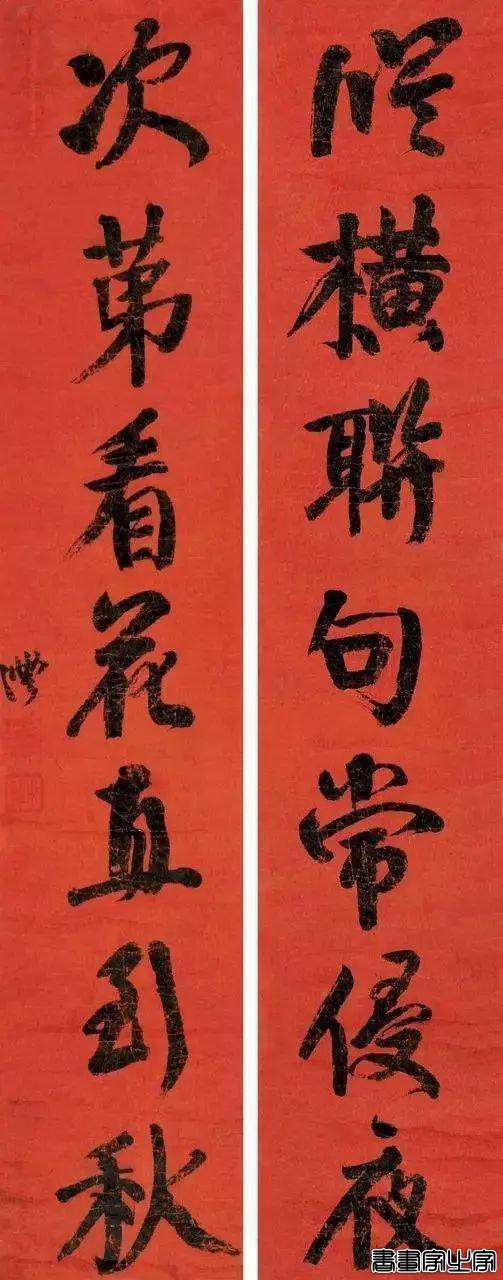 從橫聯句常侵夜
次第看花直到秋
書畫家之家